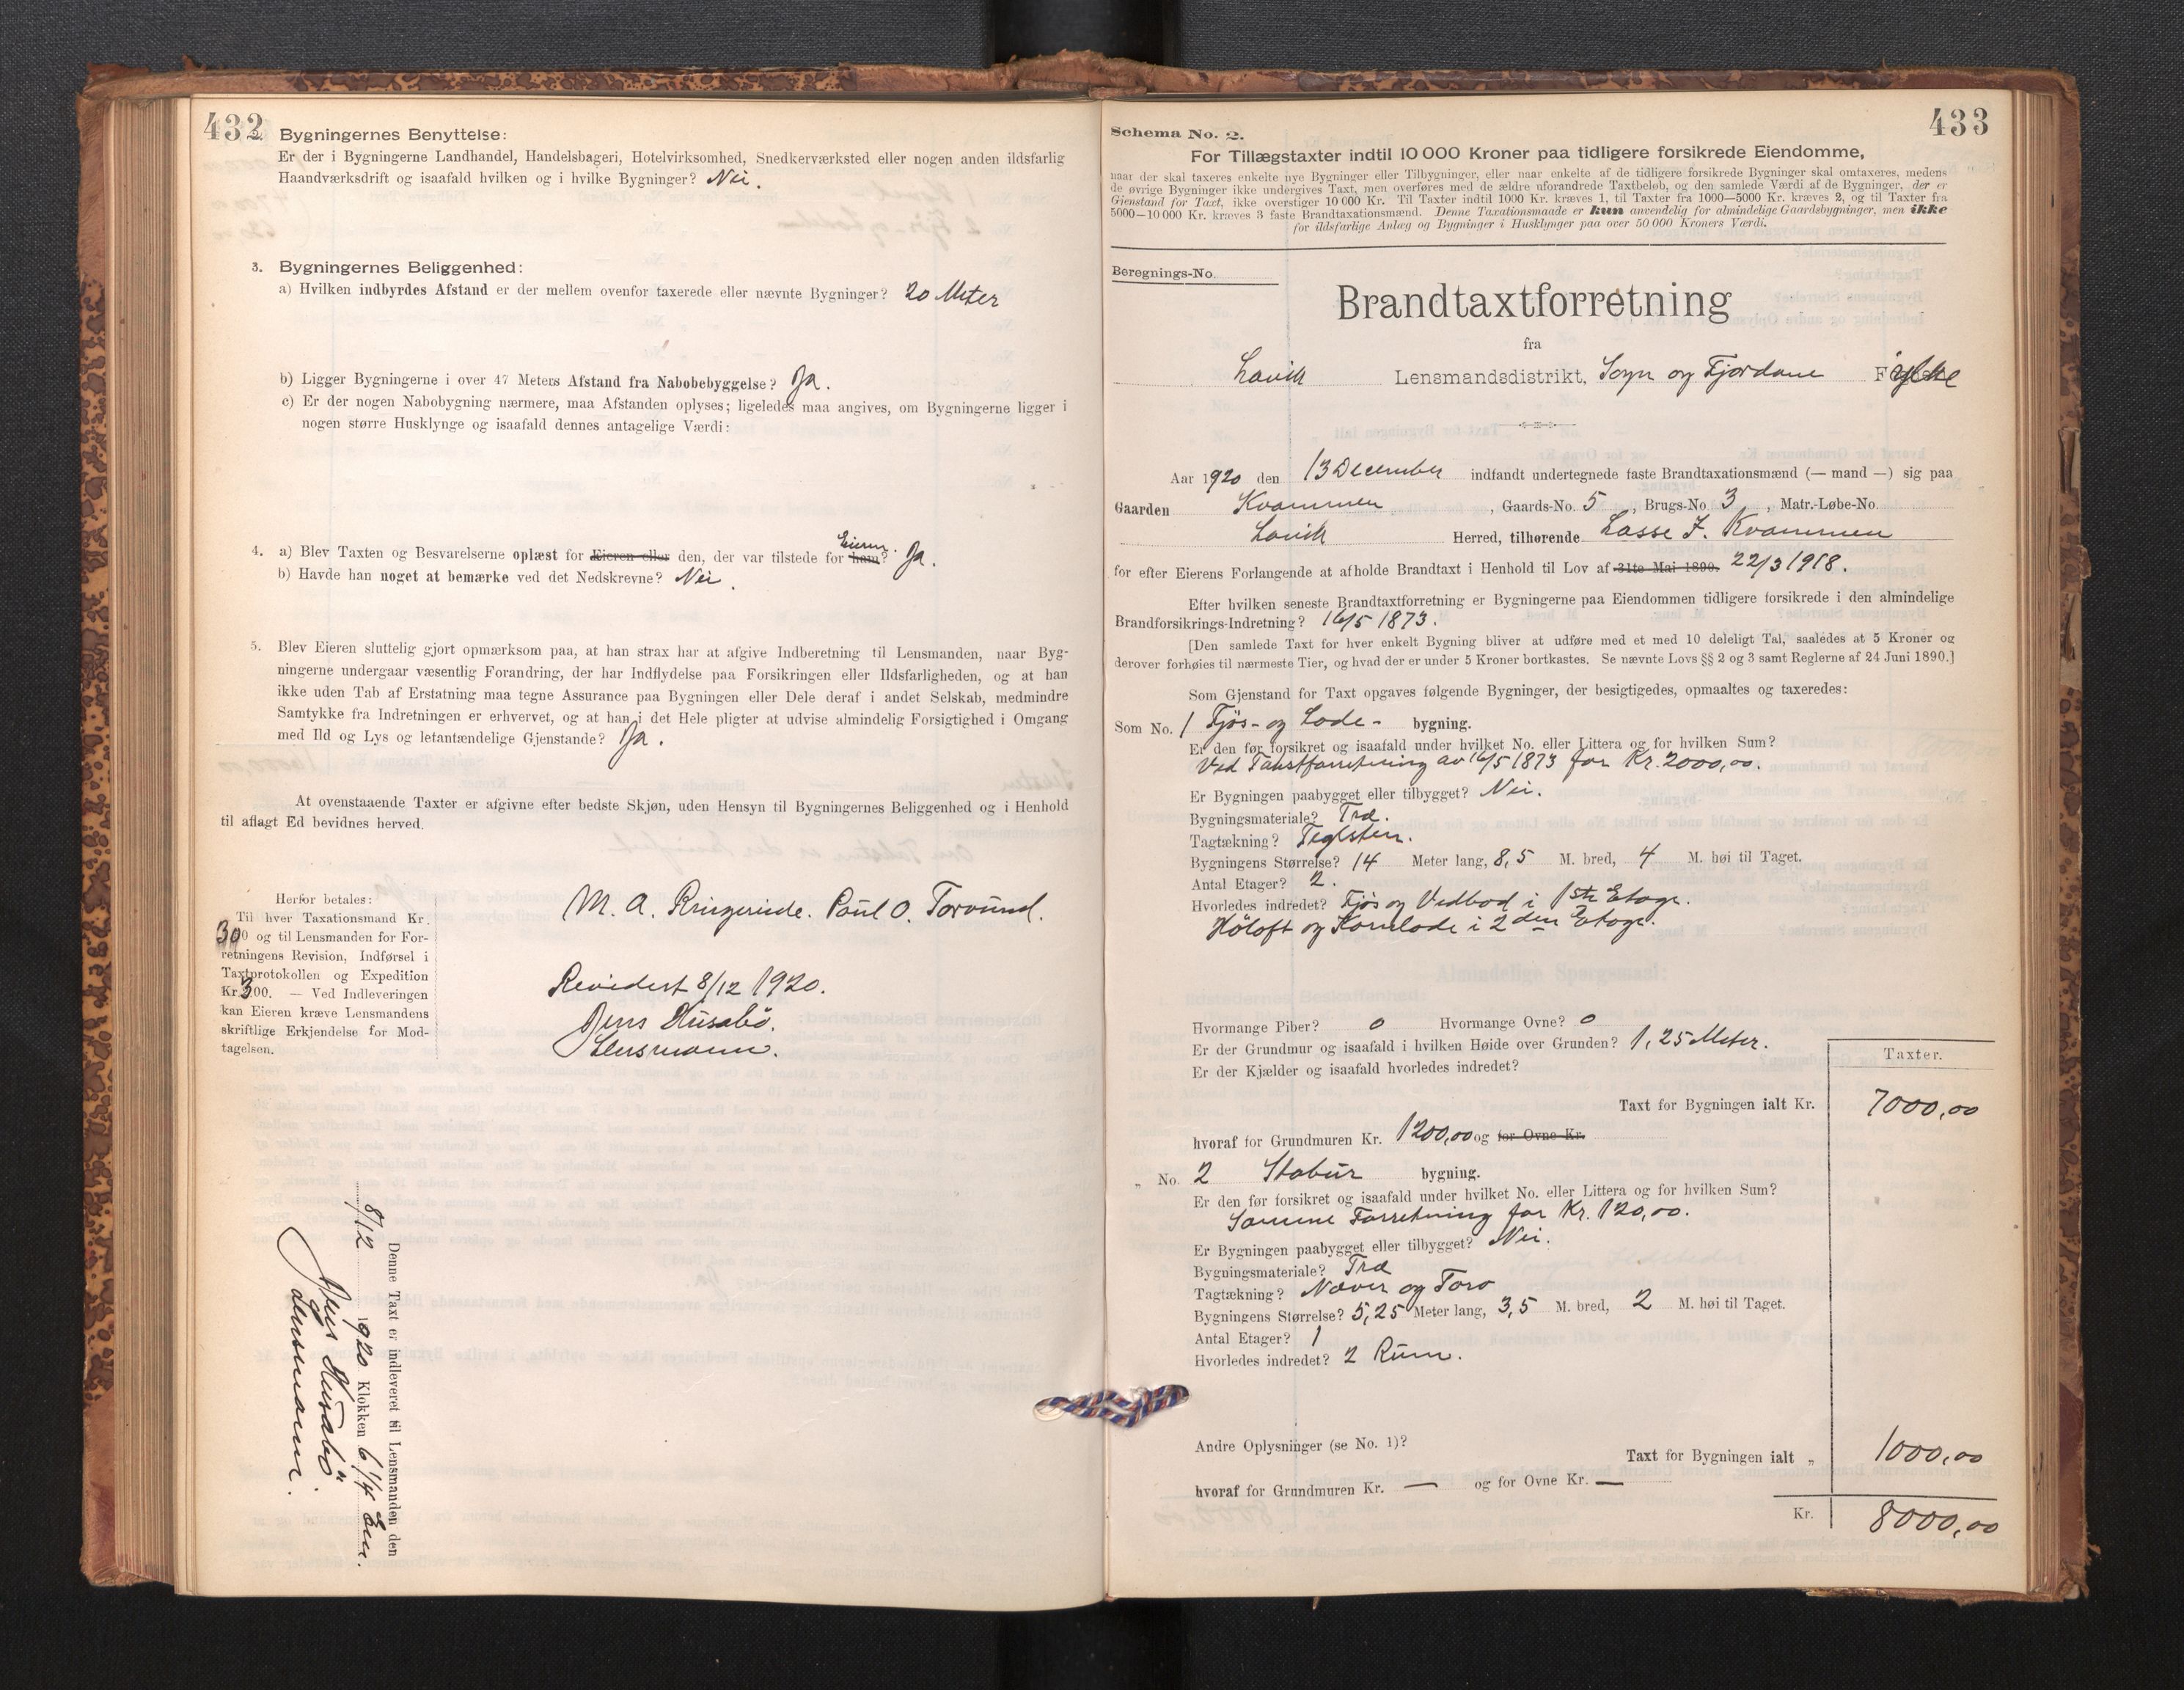 432
2. Bygningernes Benyttelse:
Er der i Bygningerne Landhandel, Handelsbageri, Hotelvirksomhed, Snedkerværksted eller nogen anden ildsfarlig
Haandværksdrift og isaafald hvilken og i hvilke Bygninger? Nei.
3. Bygningernes Beliggenhed:
a) Hvilken indbyrdes Afstand er der mellem ovenfor taxerede eller nævnte Bygninger? 20 Meter
b) Ligger Bygningerne i over 47 Meters Afstand fra Nabobebyggelse? Ja.
c) Er der nogen Nabobygning nærmere, maa Afstanden oplyses; ligeledes maa angives, om Bygningerne ligger i
nogen større Husklynge og isaafald dennes antagelige Værdi:
4. a) Blev Taxten og Besvarelserne oplæst for Eieren eller den, der var tilstede for ham? Eieren. Ja.
b) Havde han noget at bemærke ved det Nedskrevne? Nei.
5. Blev Eieren sluttelig gjort opmærksom paa, at han strax har at afgive Indberetning til Lensmanden, naar Byg-
ningerne undergaar væsentlig Forandring, der har Indflydelse paa Forsikringen eller Ildsfarligheden, og at han
ikke uden Tab af Erstatning maa tegne Assurance paa Bygningen eller Dele deraf i andet Selskab, medmindre
Samtykke fra Indretningen er erhvervet, og at han i det Hele pligter at udvise almindelig Forsigtighed i Omgang
med Ild og Lys og letantændelige Gjenstande? Ja.
At ovenstaaende Taxter er afgivne efter bedste Skjøn, uden Hensyn til Bygningernes Beliggenhed og i Henhold
til aflagt Ed bevidnes herved.
M. A. Ringereide. Paul O. Torvund.
Herfor betales:
Til hver Taxationsmand Kr.
300 og til Lensmanden for For-
retningens Revision, Indførsel i
Taxtprotokollen og Expedition
Kr. 300. — Ved Indleveringen
kan Eieren kræve Lensmandens
skriftlige Erkjendelse for Mod-
tagelsen.
Revidert 8/12 1920.
Jens Husabö.
Lensmann.
Denne Taxt er indleveret til Lensmanden den
8/12 1920 Klokken 6 1/4 Em.
Jens Husabö
Lensmann.
433
Schema No. 2.
For Tillægstaxter indtil 10 000 Kroner paa tidligere forsikrede Eiendomme,
naar der skal taxeres enkelte nye Bygninger eller Tilbygninger, eller naar enkelte af de tidligere forsikrede Bygninger skal omtaxeres, medens
de øvrige Bygninger ikke undergives Taxt, men overføres med de ældre uforandrede Taxtbeløb, og den samlede Værdi af de Bygninger, der er
Gjenstand for Taxt, ikke overstiger 10 000 Kr. Til Taxter indtil 1000 Kr. kræves 1, til Taxter fra 1000—5000 Kr. kræves 2, og til Taxter fra
5000—10 000 Kr. kræves 3 faste Brandtaxationsmænd. Denne Taxationsmaade er kun anvendelig for almindelige Gaardsbygninger, men ikke
for ildsfarlige Anlæg og Bygninger i Husklynger paa over 50 000 Kroners Værdi.
Beregnings-No.
Brandtaxtforretning
fra
Lavik Lensmandsdistrikt, Sogn og Fjordane Fylke
Aar 1920 den 13 December indfandt undertegnede faste Brandtaxationsmænd (— mand —) sig paa
Gaarden Kvammen, Gaards-No. 5, Brugs-No 3, Matr.-Løbe-No.
Lavik Herred, tilhørende Lasse J. Kvammen
for efter Eierens Forlangende at afholde Brandtaxt i Henhold til Lov af 31te Mai 1890. 22/3 1918.
Efter hvilken seneste Brandtaxtforretning er Bygningerne paa Eiendommen tidligere forsikrede i den almindelige
Brandforsikrings-Indretning? 16/5 1873.
[Den samlede Taxt for hver enkelt Bygning bliver at udføre med et med 10 deleligt Tal, saaledes at 5 Kroner og
derover forhøies til nærmeste Tier, og hvad der er under 5 Kroner bortkastes. Se nævnte Lovs §§ 2 og 3 samt Reglerne af 24 Juni 1890.]
Som Gjenstand for Taxt opgaves følgende Bygninger, der besigtigedes, opmaaltes og taxeredes:
Som No. 1 Fjös- og Lade- bygning.
Er den før forsikret og isaafald under hvilket No. eller Littera og for hvilken Sum?
Ved Takstforretning av 16/5 1873 for Kr. 2000,00.
Er Bygningen paabygget eller tilbygget? Nei.
Bygningsmateriale? Træ.
Tagtækning? Teglsten.
Bygningens Størrelse? 14 Meter lang, 8,5 M. bred, 4 M. høi til Taget.
Antal Etager? 2.
Hvorledes indredet? Fjös og Vedbod i 1ste Etage.
Höloft og Kornlade i 2den Etage.
Hvormange Piber? 0 Hvormange Ovne? 0
Er der Grundmur og isaafald i hvilken Høide over Grunden? 1,25 Meter.
Er der Kjælder og isaafald hvorledes indredet?
Taxter.
Taxt for Bygningen ialt Kr. 7000,00
hvoraf for Grundmuren Kr. 1200,00 og for Ovne Kr.
„ No. 2 Stabur bygning.
Er den før forsikret og isaafald under hvilket No. eller Littera og for hvilken Sum?
Samme Forretning for Kr. 120,00.
Er Bygningen paabygget eller tilbygget? Nei.
Bygningsmateriale? Træ
Tagtækning? Næver og Torv
Bygningens Størrelse? 5,25 Meter lang, 3,5 M. bred, 2 M. høi til Taget.
Antal Etager? 1
Hvorledes indredet? 2 Rum.
Andre Oplysninger (se No. 1)?
Taxt for Bygningen ialt „ 1000,00
hvoraf for Grundmuren Kr. — og for Ovne Kr. —
Kr. 8000,00